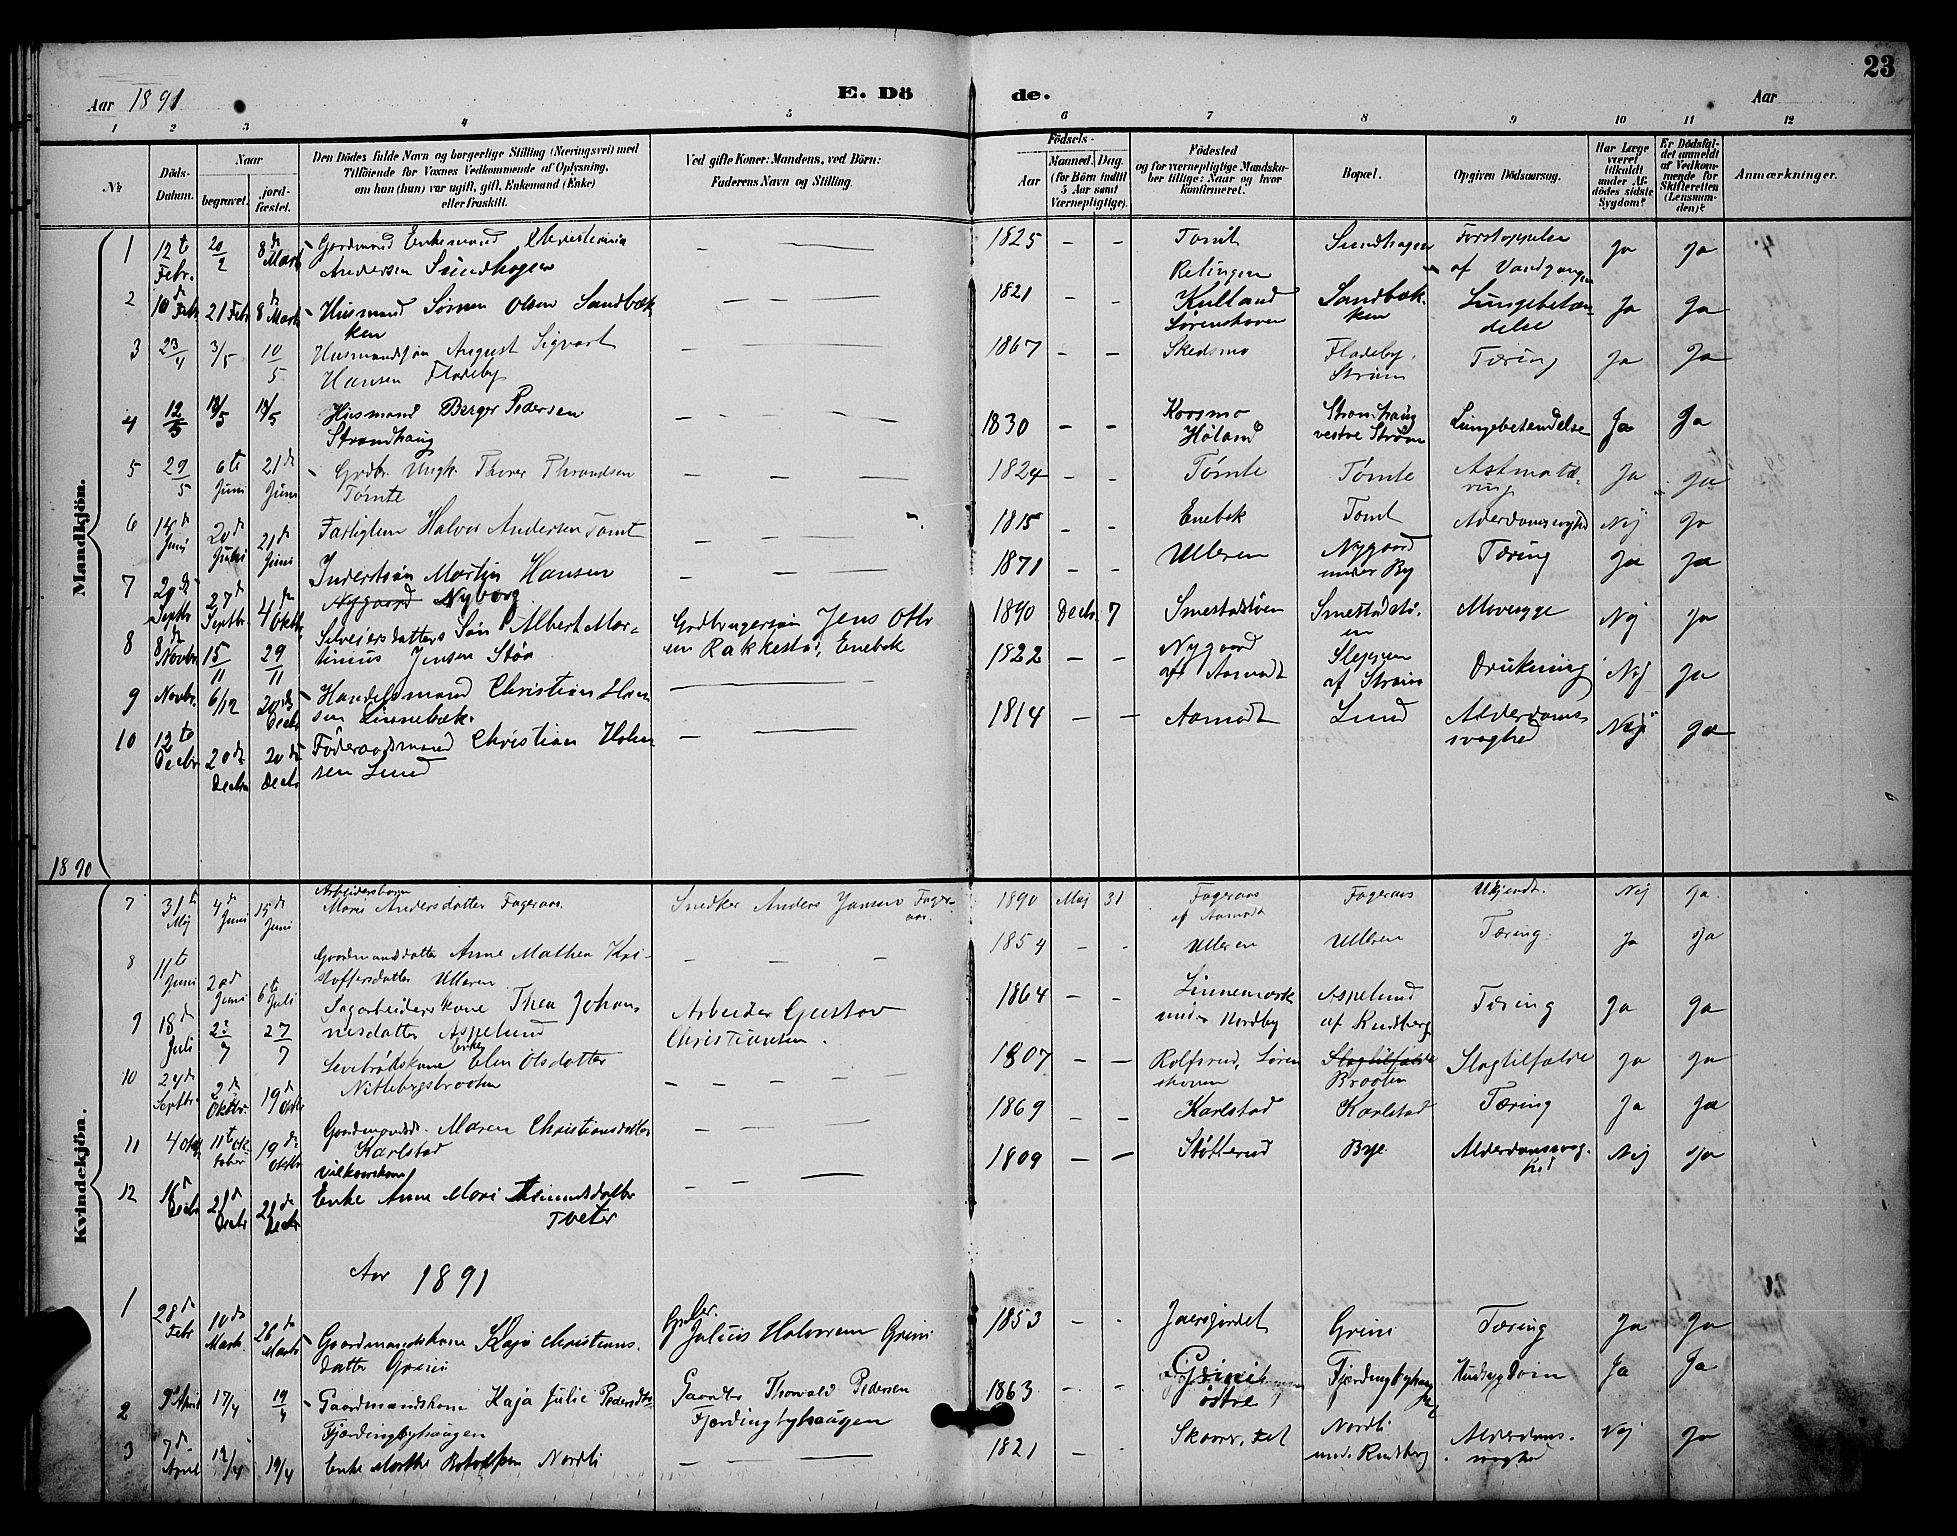 23
Aar 1891
E. Dö
de.
Aar
1 2 3 4 5 6 7 8 9 10 11 12
No
Döds-
Datum.
Naar
begravet.
jord-
fæstet.
Den Dödes fulde Navn og borgerlige Stilling (Næringsvei) med
Tilföiende for Voxnes Vedkommende af Oplysning,
om han (hun) var ugift, gift, Enkemand (Enke)
eller fraskilt.
Ved gifte Koner: Mandens, ved Börn:
Faderens Navn og Stilling.
Födsels-
Aar
Maaned. Dag.
(for Börn indtil
5 Aar samt
Værnepligtige).
Födested
og for værnepligtige Mandska-
ber tillige: Naar og hvor
konfirmeret.
Bopæl.
Opgiven Dödsaarsag.
Har Læge
været
tilkaldt
under Af-
dödes sidste
Sygdom?
Er Dödsfal-
det anmeldt
af Vedkom-
mende for
Skifteretten
(Lensman-
den)?
Anmærkninger.
Mandkjön.
1 12te Febr. 20/2 8de Marts Gaardmand Enkemand Christian
Andersen Sundhagen — — 1825 — — Tomt
Relingen Sundhagen Forstoppelse
af Vandgangen Ja Ja
2 10de Febr 21 Febr 8de Marts Husmand Sörren Olsen Sandbæk-
ken — — — 1821 - - Kulland
Sörenshoven Sandbæk-
ken Lungebetæn-
delse Ja Ja
3 23/4 3/5 10/5 Husmandssøn August Sigvart
Hansen Fladeby — — 1867 — — Skedsmo Fladeby,
Strøm Tæring Ja Ja
4 12/5 18/5 18/5 Husmand Berger Pedersen
Strandhaug — — 1830 — — Korsmo
Høland
vestre Strøm Lungebetændelse Ja Ja
5 29/5 6te Juni 21de Juni Thorer Throndsen
Tömte — — 1824 — — Tømte Tømte Ja Ja
6 14de Juni 20de Juni 21de Juni Fattiglem Halvor Andersen Tomt — — 1815 - - Enebak Tomt Alderdomssvaghed Nej Ja
7 20de Septbr 27de Septbr. 4de Oktbr Inderstsøn Martin Hansen
Nygaard Nyborg — — 1871 — — Ulleren Nygaard
under By Tæring Ja Ja
8 8de Novbr 15/11 29/11 Søn Albert Mar-
tinius Jensen Støa Gaardbrugersøn Jens Otto
en Rakkestad, Enebak 1890 Decbr 7 Smestadstøen Smestadstø-
en Mavesyge Nej Ja
9 Novbr. 6/12 20de Decbr Handelsmand Christian Han
sen Linnebæk. — — 1822 — — Nygaard
af Aamodt
af Strøm Drukning Nej Ja
10 12te Decbr 20de Decbr 20de Decbr Føderaadsmand Christian Hahn
sen Lund — — 1814 — — Aamodt Lund Alderdoms
svaghed Nej Ja
1890
Kvindekjön.
7 31te Maj 4de Juni 15de Juni Arbeidersbarn
Mari Andersdatter Fageraas Snedker Anders Jansen Fager-
aas. 1890 Maj 31 Fageraas
af Aamodt Fageraas Ukjendt. Nej Ja
8 11te Juni 20de Juni 6te Juli Gaardmandsdatter Anne Mathea Kri-
stoffersdatter Ulleren — — — 1854 - - Ulleren Ulleren Tæring Ja Ja
9 18de Juli 23/7 27/7 Sagarbeiderskone Thea Johan-
nesdatter Aspelund Arbeider Gustav
Christiansen. 1864 — — Linnemark
under Nordby Aspelund
af Rudberg Tæring Ja Ja
10 24de Septbr. 2de Oktbr. 19de Oktbr Enke
Elen Olsdatter
Nitteberg — — — 1807 — — Rolfsrud, Søren
skoven Slagtilfælde
Braaten Slagtilfælde Ja Ja
11 4 Oktbr 11te Ok-
tober 19de Oktbr Gaardmandsd. Maren Christiansdatter
Karlstad — — 1869 — — Karlstad Karlstad Tæring Ja Ja
12 16de Decbr 21de Decbr 21de Decbr Vilkaarskone
Enke Anne Mari
Tveter — — — 1809 — — Støtterud Bye Alderdomssvag-
hed Nej Ja
Aar 1891
1 28de Febr 10de Marts 26de Marts Gaardmandskone Kaja Christians-
datter Grini Julius Halvorsen Grini 1853 - - Grini Tæring Ja Ja
2 9de April 17/4 19/4 Gaardmandskone Kaja Julie Pedersdtr
Fjerdingbyhaugen Thorvald Pedersen
Fjerdingbyhaugen 1863 - - Grini
østre Fjerdingbyhau
gen Ja Ja
3 7de April 12/4 19/4 Enke Marthe Nordli — — — 1821 - - Nordli
under Rudberg Alderdoms-
svaghed Nej Ja